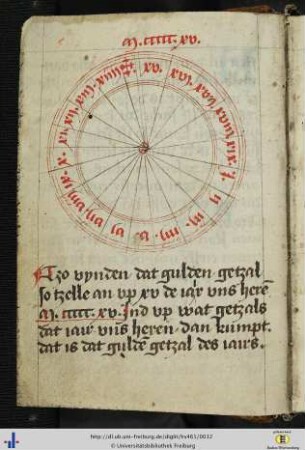 M. ccccc. xv.
xv. xvj. xvij. xviij. xix. j. ij. iij. iiij. v. vj. vij. viij. ix. x. xj. xij. xiij. xiiij.
Azo vynden dat gulden getzal
so tzelle an vp xv de iair vns herē
M. ccccc. xv. Ind vp wat getzals
dat iair vns heren dan kumpt.
dat is dat guldē getzal des iairs.
http://dl.ub.uni-freiburg.de/diglit/hs463/0032
© Universitätsbibliothek Freiburg
Baden-Württemberg